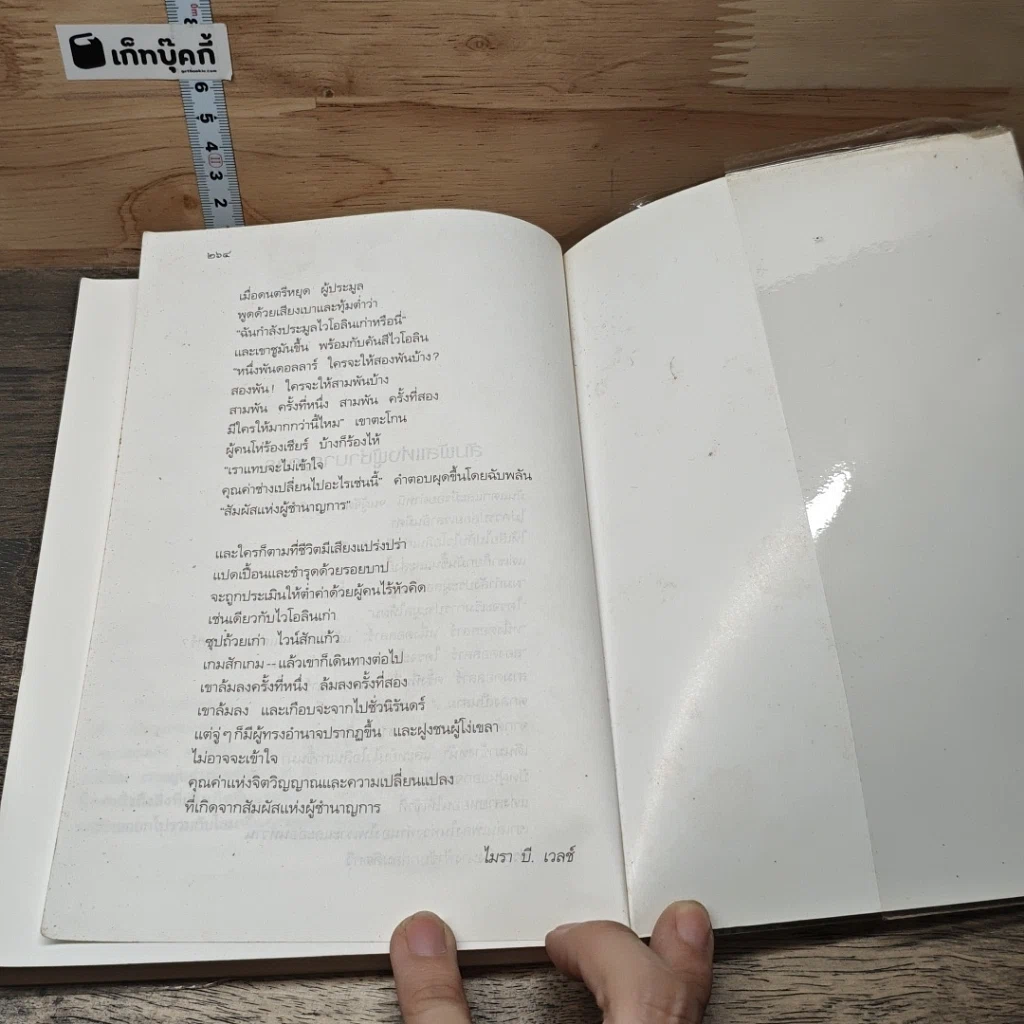 เก็ทบุ๊คกี้
6
5
4
3
2
๒๖๔
เมื่อดนตรีหยุด ผู้ประมูล
พูดด้วยเสียงเบาและทุ้มต่ำว่า
"ฉันกำลังประมูลไวโอลินเก่าหรือนี่"
และเขาชูมันขึ้น พร้อมกับคันสีไวโอลิน
"หนึ่งพันดอลลาร์ ใครจะให้สองพันบ้าง?
สองพัน! ใครจะให้สามพันบ้าง
สามพัน ครั้งที่หนึ่ง สามพัน ครั้งที่สอง
มีใครให้มากกว่านี้ไหม" เขาตะโกน
ผู้คนโห่ร้องเชียร์ บ้างก็ร้องไห้
"เราแทบจะไม่เข้าใจ
คุณค่าช่างเปลี่ยนไปอะไรเช่นนี้" คำตอบผุดขึ้นโดยฉับพลัน
"สัมผัสแห่งผู้ชำนาญการ"
และใครก็ตามที่ชีวิตมีเสียงแปร่งปร่า
แปดเปื้อนและชำรุดด้วยรอยบาป
จะถูกประเมินให้ต่ำค่าด้วยผู้คนไร้หัวคิด
เช่นเดียวกับไวโอลินเก่า
ซุปถ้วยเก่า ไวน์สักแก้ว
เกมสักเกม -- แล้วเขาก็เดินทางต่อไป
เขาล้มลงครั้งที่หนึ่ง ล้มลงครั้งที่สอง
เขาล้มลง และเกือบจะจากไปชั่วนิรันดร์
แต่จู่ๆ ก็มีผู้ทรงอำนาจปรากฏขึ้น และฝูงชนผู้โง่เขลา
ไม่อาจจะเข้าใจ
คุณค่าแห่งจิตวิญญาณและความเปลี่ยนแปลง
ที่เกิดจากสัมผัสแห่งผู้ชำนาญการ
ไมรา บี. เวลช์